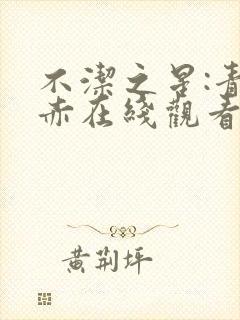 不潔之星:青
赤在綫觀看
黄荆坪